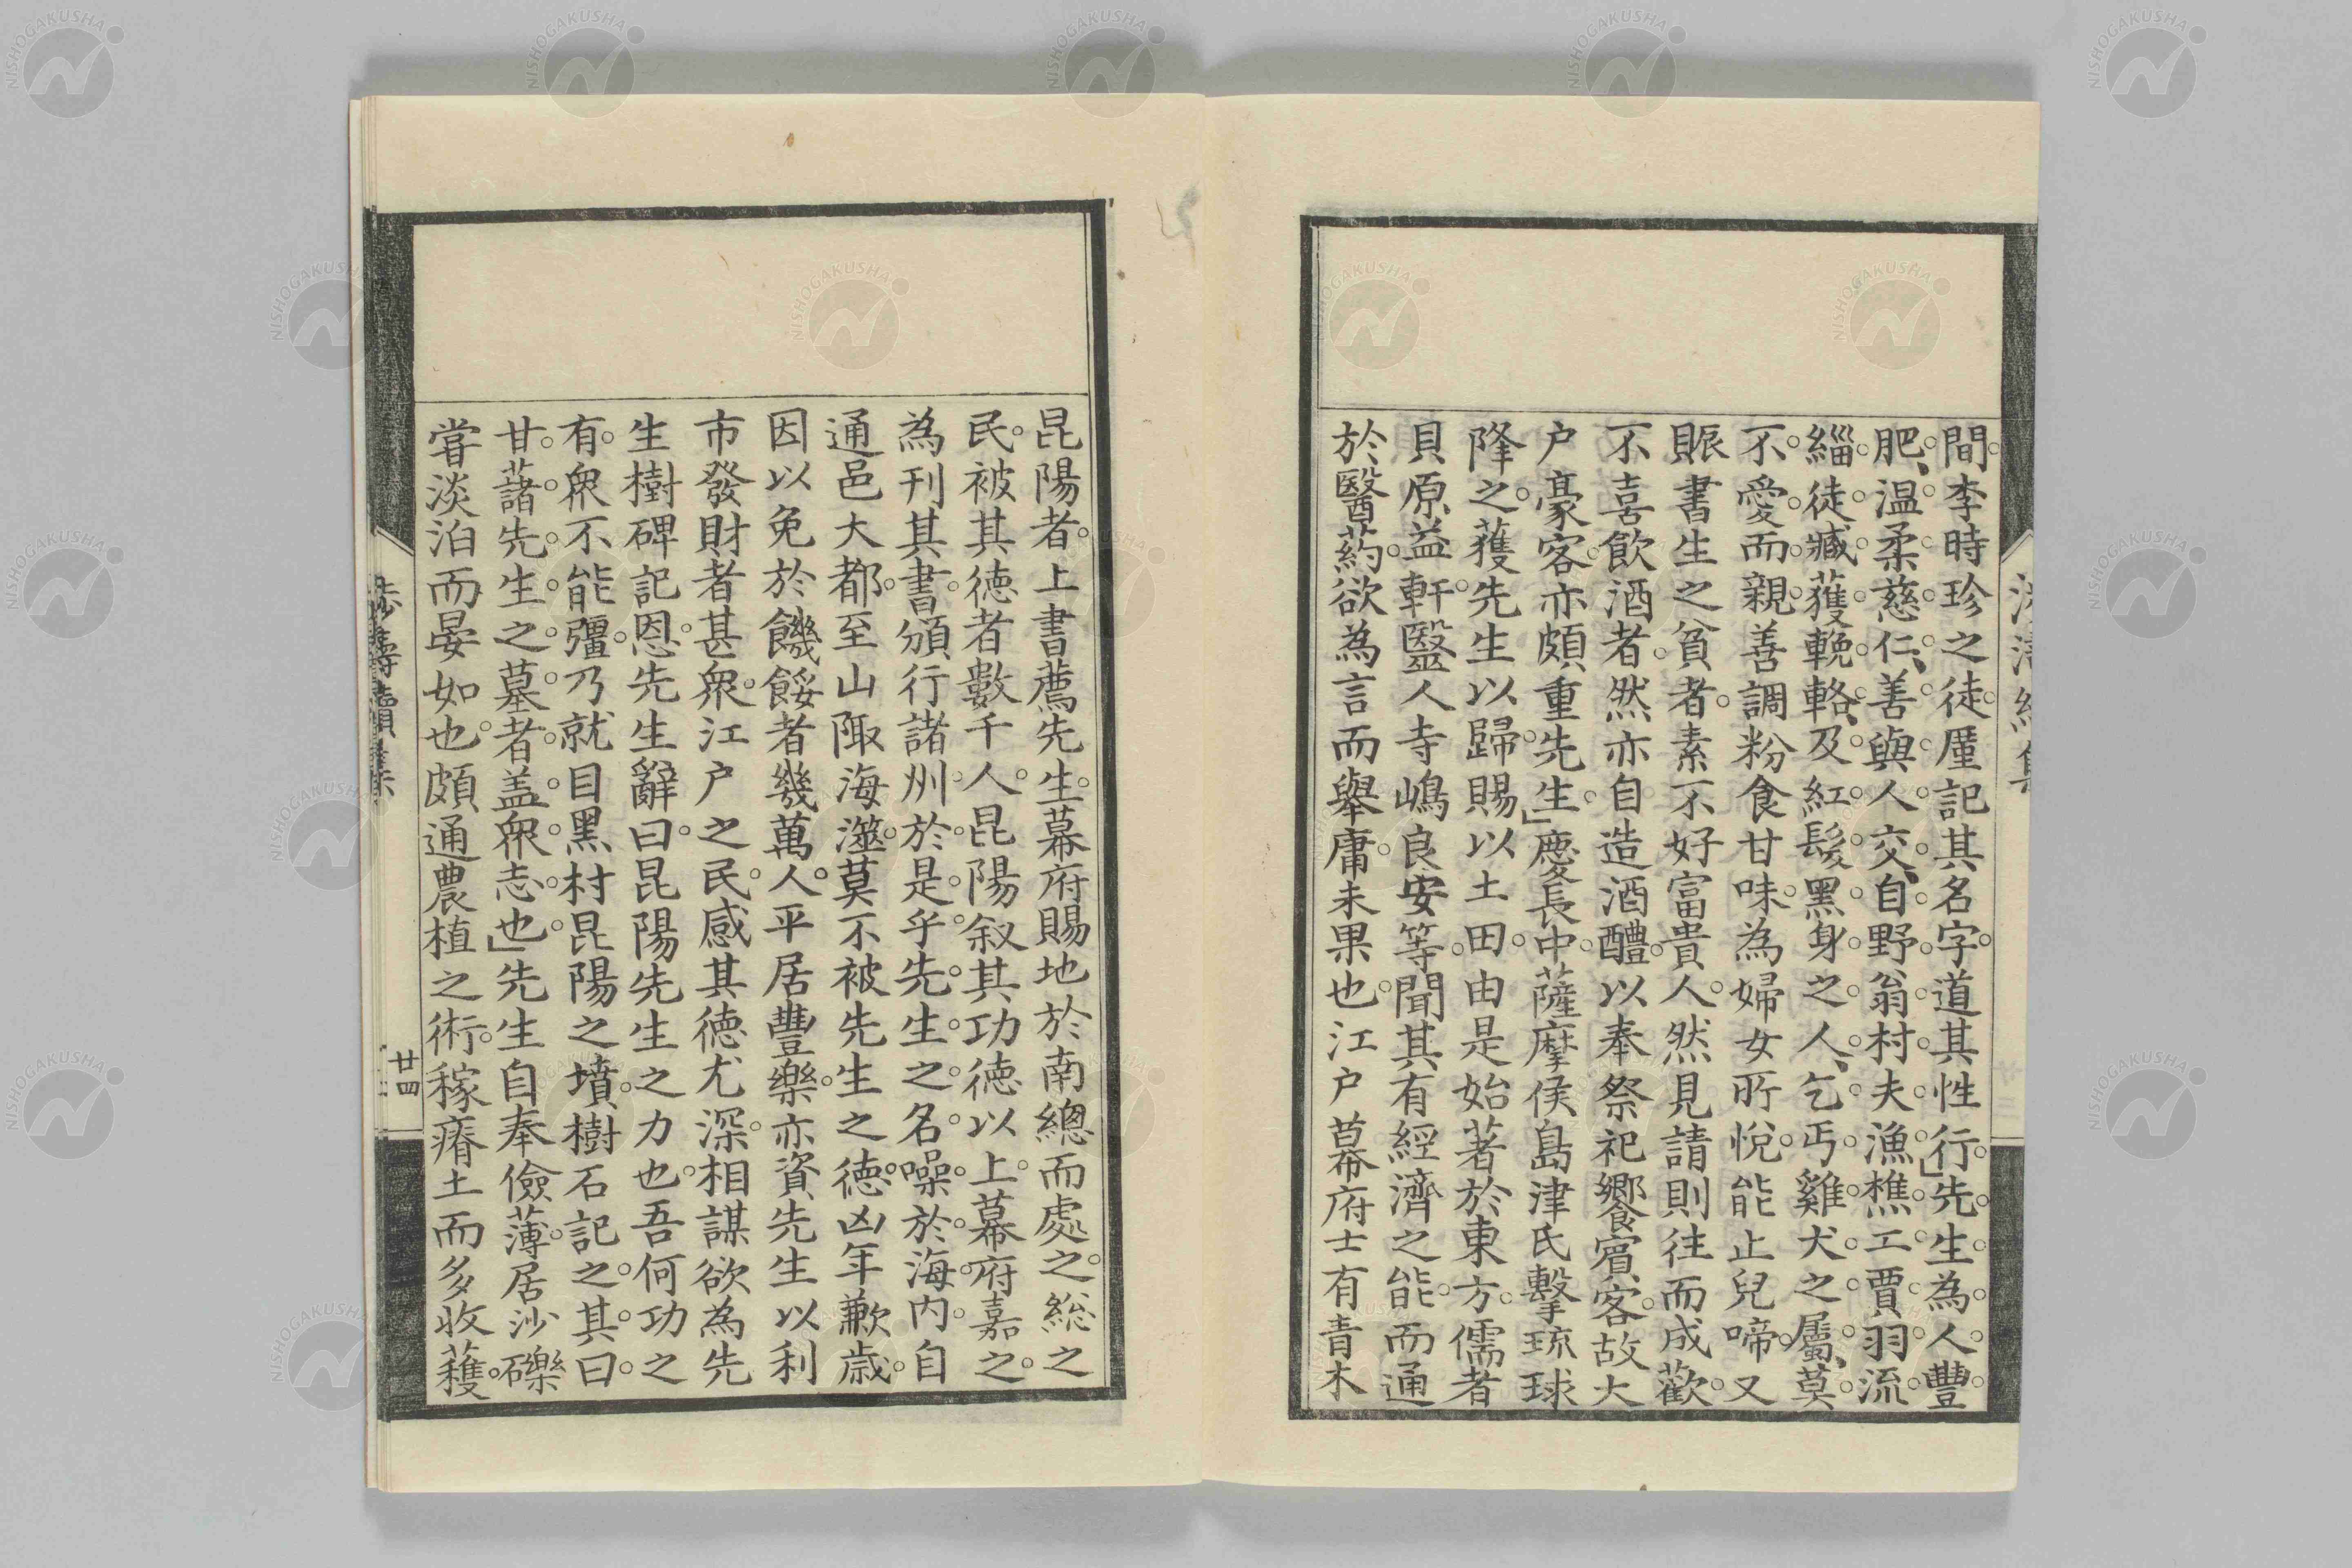 間李時珍之徒厪記其名字道其性行」先生為人豐
肥、温柔慈仁、善與人交、自野翁村夫漁樵工賈羽流
緇徒臧獲輓輅、及紅髮黑身之人、乞丐雞犬之屬、莫
不愛而親善調粉食甘味為婦女所悅能止兒啼又
賑書生之貧者素不好富貴人然見請則往而成歡
不喜飲酒者然亦自造酒醴以奉祭祀饗賓客故大
户豪客亦頗重先生」慶長中薩摩侯島津氏擊琉球
降之獲先生以歸賜以土田由是始著於東方儒者
貝原益軒醫人寺嶋良安等聞其有經濟之能而通
於醫药欲為言而舉庸未果也江户幕府士有青木
昆陽者上書薦先生幕府賜地於南總而處之総之
民被其徳者數千人昆陽叙其功徳以上幕府嘉之
為刊其書頒行諸州於是乎先生之名噪於海内自
通邑大都至山陬海澨莫不被先生之德凶年歉歳
因以免於饑餒者幾萬人平居豐樂亦資先生以利
市發財者甚衆江户之民感其徳尤深相謀欲為先
生樹碑記恩先生辭曰昆陽先生之力也吾何功之
有衆不能彊乃就目黑村昆陽之墳樹石記之其曰
甘藷先生之墓者盖衆志也」先生自奉儉薄居沙礫
甞淡泊而晏如也頗通農植之術稼瘠土而多收穫
廿四